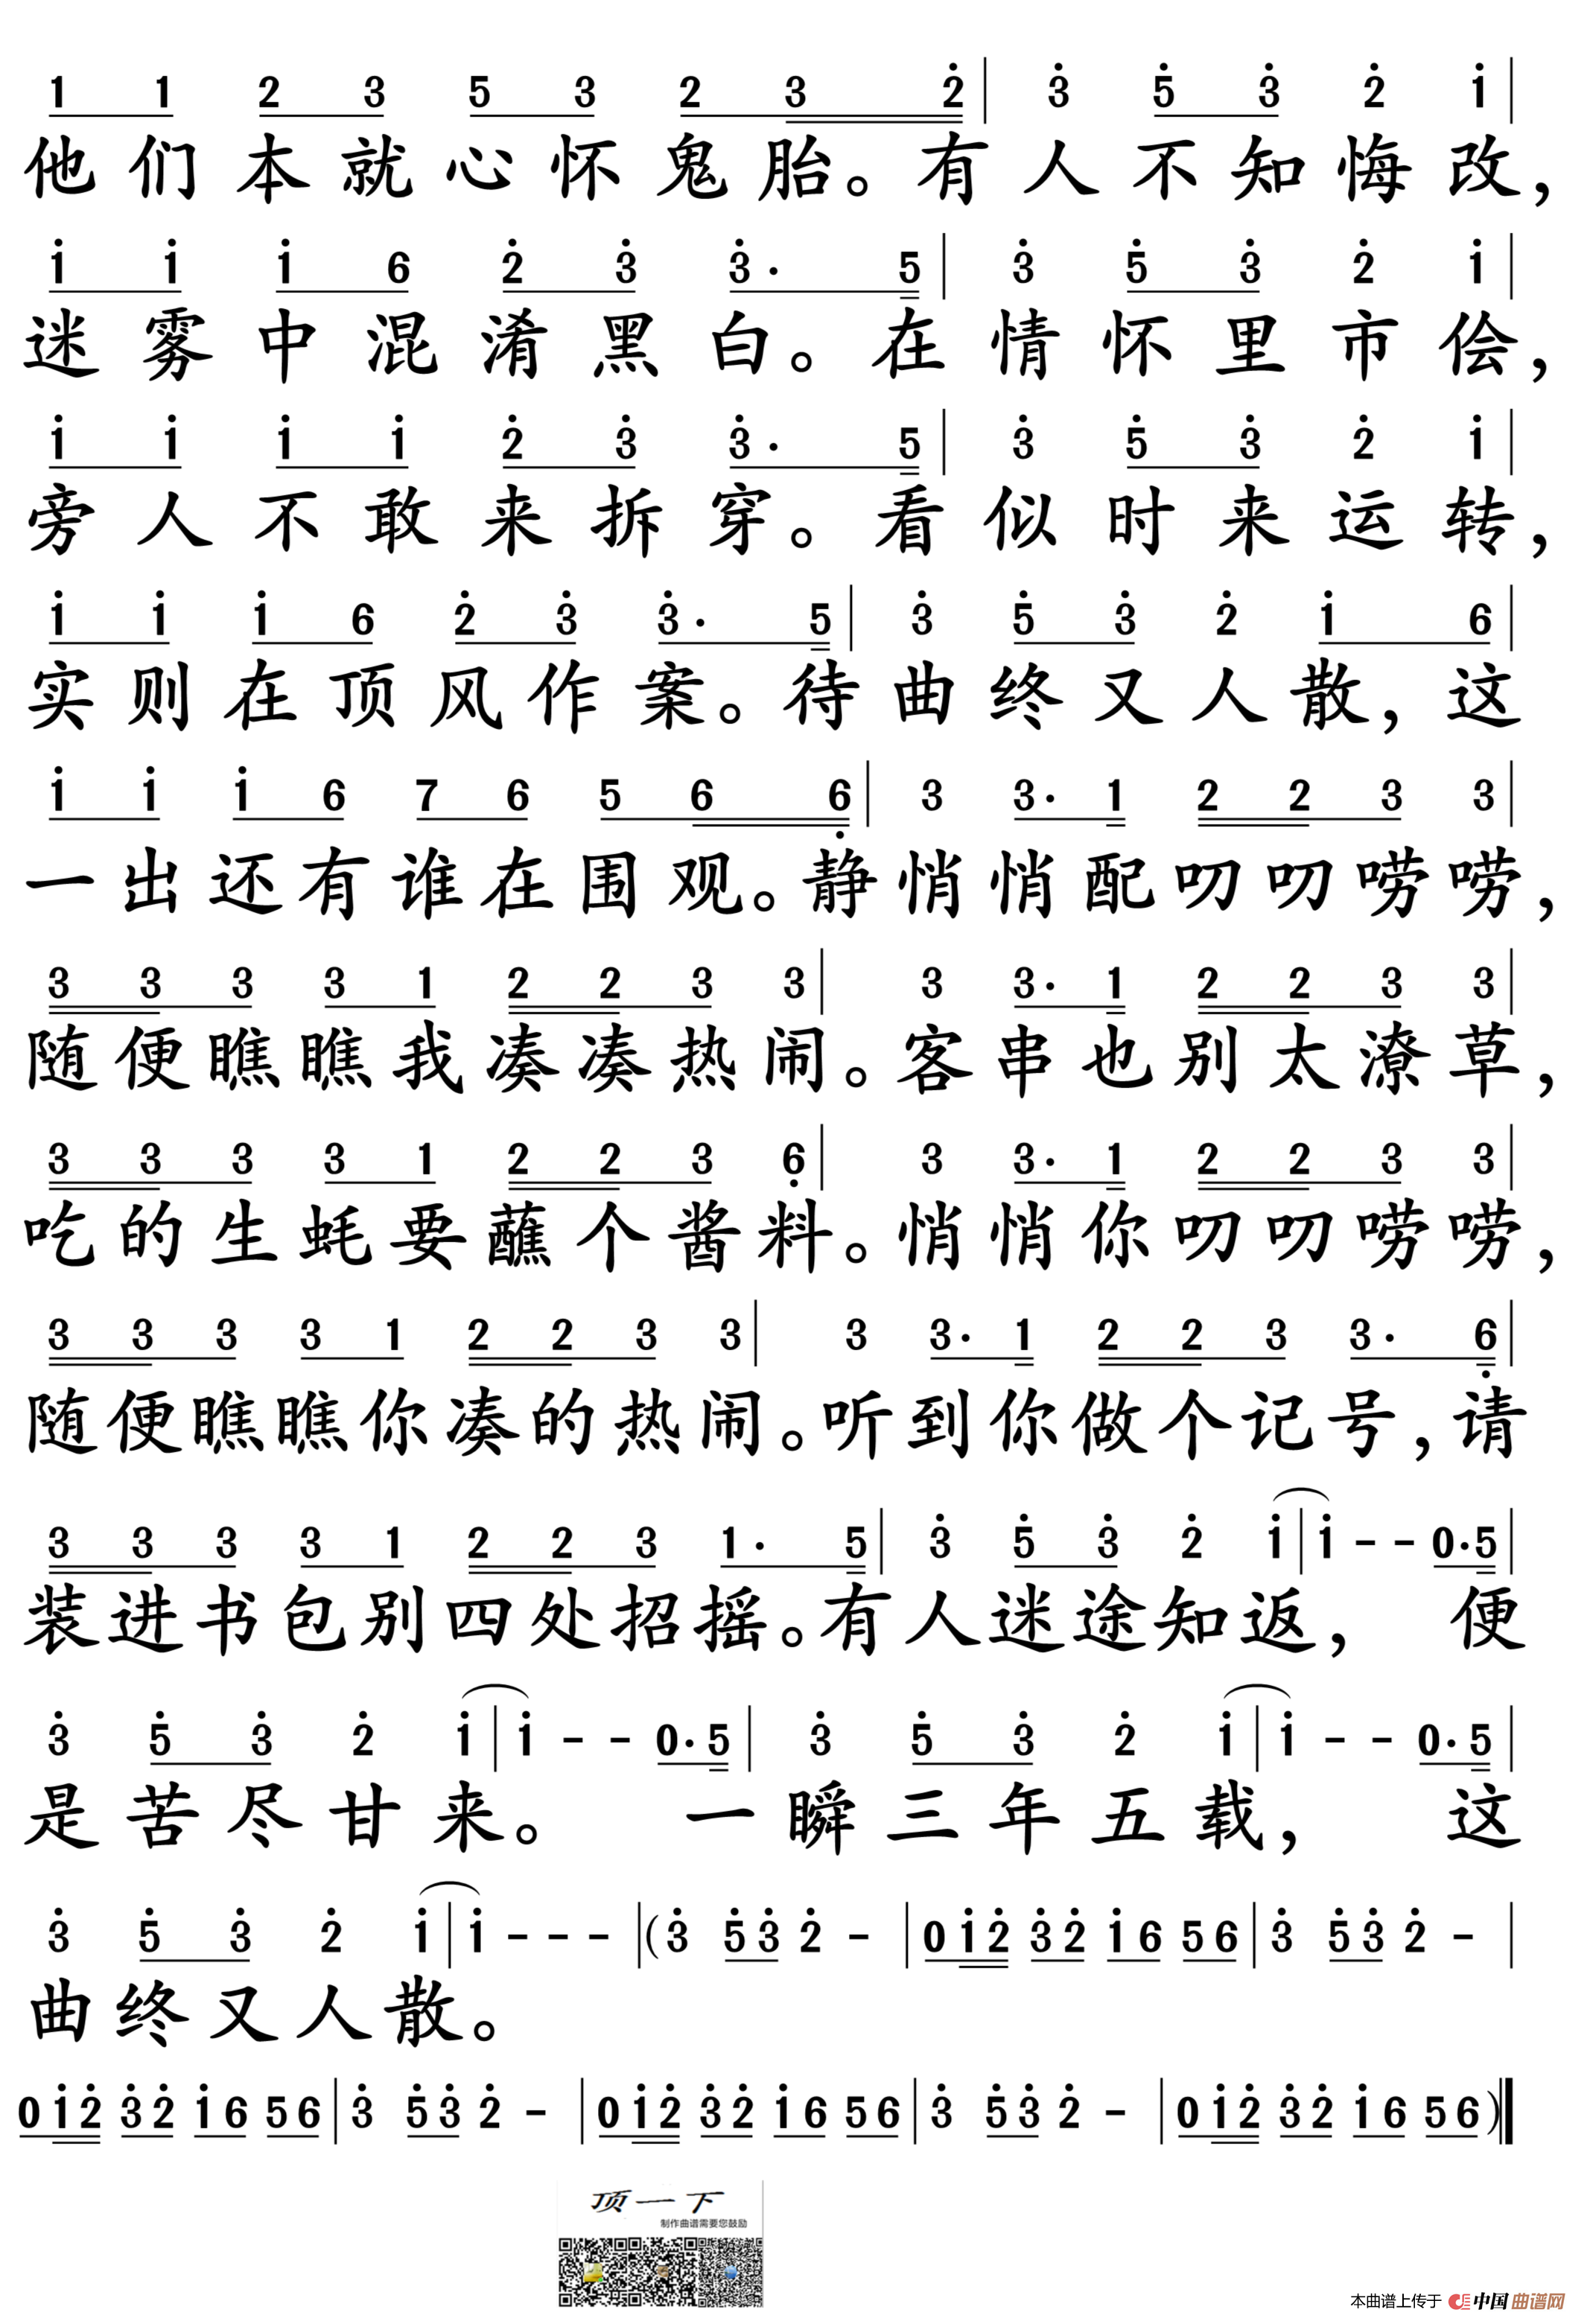 1 1 2 3 5 3 2 3 2̇ | 3̇ 5̇ 3̇ 2̇ 1̇ |
他们本就心怀鬼胎。有人不知悔改，
1̇ 1̇ 1̇ 6 2̇ 3̇ 3̇· 5 | 3̇ 5̇ 3̇ 2̇ 1̇ |
迷雾中混淆黑白。在情怀里市侩，
1̇ 1̇ 1̇ 1̇ 2̇ 3̇ 3̇· 5 | 3̇ 5̇ 3̇ 2̇ 1̇ |
旁人不敢来拆穿。看似时来运转，
1̇ 1̇ 1̇ 6 2̇ 3̇ 3̇· 5 | 3̇ 5̇ 3̇ 2̇ 1̇ 6 |
实则在顶风作案。待曲终又人散，这
1̇ 1̇ 1̇ 6 7 6 5 6 6̣ | 3 3· 1 2 2 3 3 |
一出还有谁在围观。静悄悄配叨叨唠唠，
3 3 3 3 1 2 2 3 3 | 3 3· 1 2 2 3 3 |
随便瞧瞧我凑凑热闹。客串也别太潦草，
3 3 3 3 1 2 2 3 6̣ | 3 3· 1 2 2 3 3 |
吃的生蚝要蘸个酱料。悄悄你叨叨唠唠，
3 3 3 3 1 2 2 3 3 | 3 3· 1 2 2 3 3· 6̣ |
随便瞧瞧你凑的热闹。听到你做个记号，请
3 3 3 3 1 2 2 3 1· 5 | 3̇ 5̇ 3̇ 2̇ 1̇ | 1̇ - - 0· 5 |
装进书包别四处招摇。有人迷途知返，便
3̇ 5̇ 3̇ 2̇ 1̇ | 1̇ - - 0· 5 | 3̇ 5̇ 3̇ 2̇ 1̇ | 1̇ - - 0· 5 |
是苦尽甘来。一瞬三年五载，这
3̇ 5̇ 3̇ 2̇ 1̇ | 1̇ - - - | (3̇ 5̇ 3̇ 2̇ - | 0 1̇ 2̇ 3̇ 2̇ 1̇ 6 5 6 | 3̇ 5̇ 3̇ 2̇ - |
曲终又人散。
0 1̇ 2̇ 3̇ 2̇ 1̇ 6 5 6 | 3̇ 5̇ 3̇ 2̇ - | 0 1̇ 2̇ 3̇ 2̇ 1̇ 6 5 6 | 3̇ 5̇ 3̇ 2̇ - | 0 1̇ 2̇ 3̇ 2̇ 1̇ 6 5 6 )‖
顶一下
制作曲谱需要您鼓励
本曲谱上传于 中国曲谱网